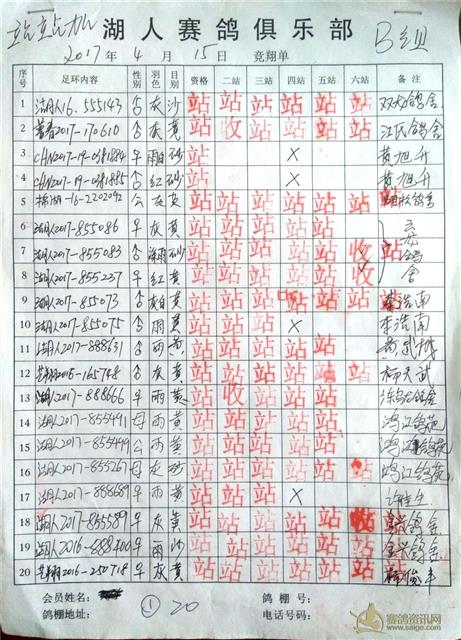 站站加
湖人赛鸽俱乐部
B组
2017年4月15日 竞翔单
序号 足环内容 性别 羽色 目别 资格 二站 三站 四站 五站 六站 备注
1 湖人16.555143 灰 沙 站 站 站 站 站 站
2 2017-170610 灰 黄 站 收 站 站 站 站 江氏鸽舍
3 CHN2017-19-0381884 雨白 砂 站 X 黄旭升
4 CHN2017-19-0381885 红 砂 站 X 黄旭升
5 16-2202092 公 灰 黄 站 站 站 站 站 站
6 湖人2017-855086 灰 黄 站 站 站 站 站
7 湖人2017-855083 砂 站 站 站 站 站 收 站
8 湖人2017-855237 红 黄 站 站 站 站 站 收
9 湖人2017-855073 灰白 黄 站 站 站 站 站 站 李浩南
10 湖人2017-855075 雨 黄 站 站 站 X 李浩南
11 湖人2017-888631 雨 黄 站 站 站 站 站
12 2015-165748 灰 黄 站 站 站 站 站 站
13 湖人2017-888666 雨 黄 站 收 站 站 站
14 湖人2017-855491 母 雨 黄 站 站 站 站 站 鸿江鸽苑
15 湖人2017-855499 公 雨 黄 站 站 站 站 站 鸿江鸽苑
16 湖人2017-855267 母 灰 砂 站 站 站 站 站 站 鸿江鸽苑
17 湖人2017-888689 雨 黄 站 站 站 X
18 湖人2017-865589 灰 黄 站 站 站 站 站 金兴鸽舍
19 湖人2016-888400 雨 沙 站 站 站 站 站 站 金兴鸽舍
20 2016-250718 灰 黄 站 站 站 站 站 站
会员姓名： 鸽棚号：
鸽棚地址： ① 20 电话号码：
赛鸽资讯网
www.saige.com